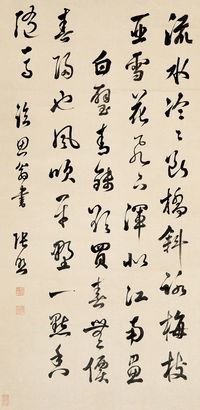 流水泠々断橋斜路梅枝
亞雪花飛下渾似江南畫
白璧青錢欲買春無價
春歸也風吹平野一點香
隨馬 臨思翁書 張照